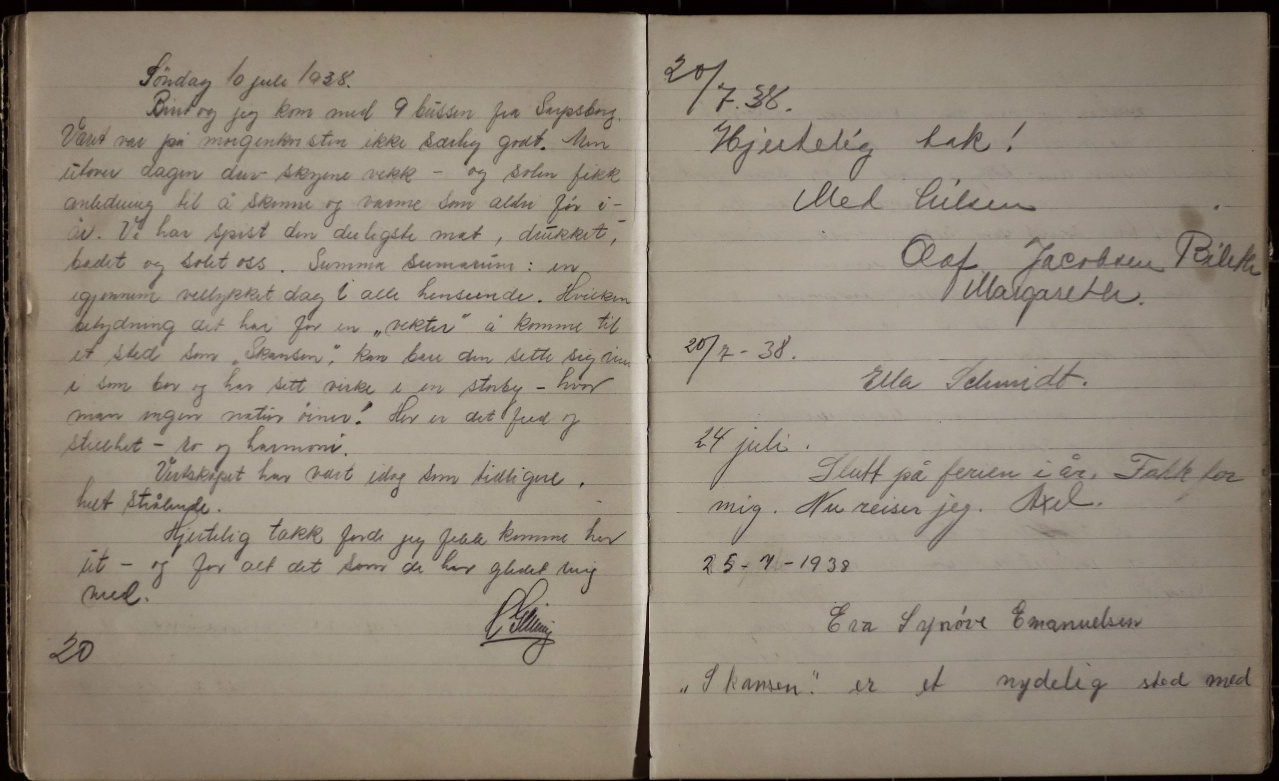 Søndag 10 juli 1938.
og jeg kom med 9 bussen fra Sarpsborg.
Været var på morgenkvisten ikke særlig godt. Men
utover dagen drev skyene vekk – og solen fikk
anledning til å skinne og varme som aldri før i-
år. Vi har spist den deiligste mat, drukket,
badet og solet oss. Summa sumarum: en
igjennem vellykket dag i alle henseende. Hvilken
betydning det har for en „vekter" å komme til
et sted som „Skansen", kan bare den sette sig inn
i som bor og har sett virke i en storby – hvor
man ingen natur øiner! Her er det fred og
stillhet – ro og harmoni.
Vertskapet har vært idag som tidligere,
helt strålende.
Hjertelig takk fordi jeg fikk komme her
ut – og for alt det som de har gledet mig
med.
20
20/7.38.
Hjertelig tak!
Med hilsen
Olaf Jacobsen
Margarethe.
20/7-38.
Ella Schmidt.
24 juli.
Slutt på ferien i år. Takk for
mig. Nu reiser jeg. Axel.
25-7-1938
Eva Synøve Emanuelsen
„Skansen". er et nydelig sted med